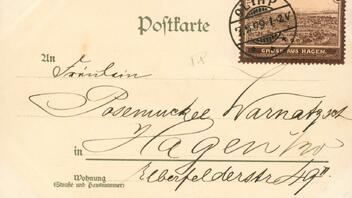 Postkarte
GRUSS AUS HAGEN.
An
Fräulein
Posemuckel Warnatzsch
in Hagen i/W
Wohnung
(Straße und Hausnummer)
Elberfelderstr. 49 II